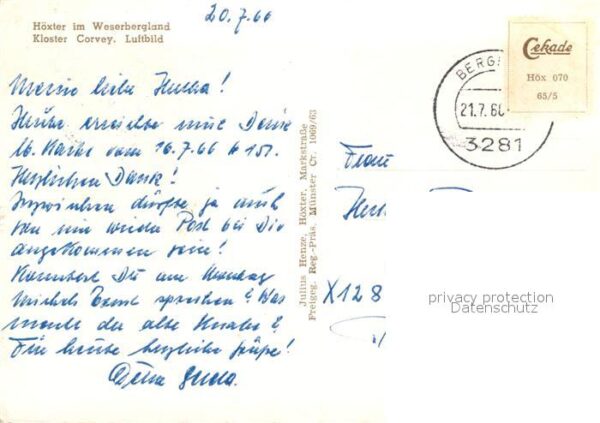 20.7.66
Höxter im Weserbergland
Kloster Corvey. Luftbild
Meine liebe Herta!
Heute erreichte mich Deine
lb. Karte vom 16.7.66
Herzlichen Dank!
Inzwischen dürfte ja auch
von mir wieder Post bei Dir
angekommen sein!
Konntest Du am Montag
sprechen? Was
macht der alte Knabe?
Für heute herzliche Grüße!
Deine
Julius Henze, Höxter, Markstraße
Freigeg. Reg.-Präs. Münster Cr. 1069/63
Cekade
Höx 070
65/5
BERG
21.7.66
3281
Frau
Her
X128
privacy protection
Datenschutz